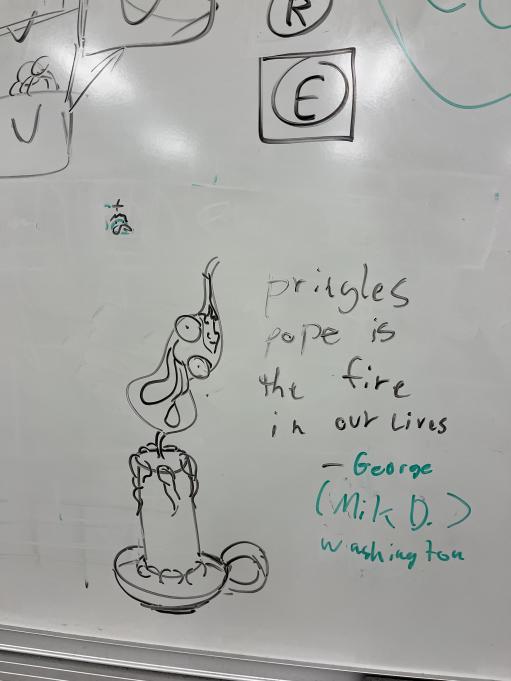 R
E
pringles
pope is
the fire
in our lives
- George
(Mik D.)
washington